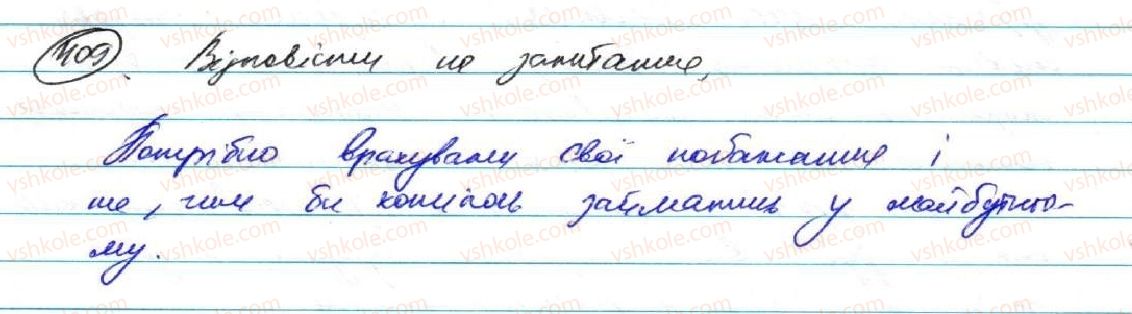 409. Відповісти на запитання,
Потрібно врахувати свої побажання і
те, чим би хотілось займатись у майбутньо-
му.